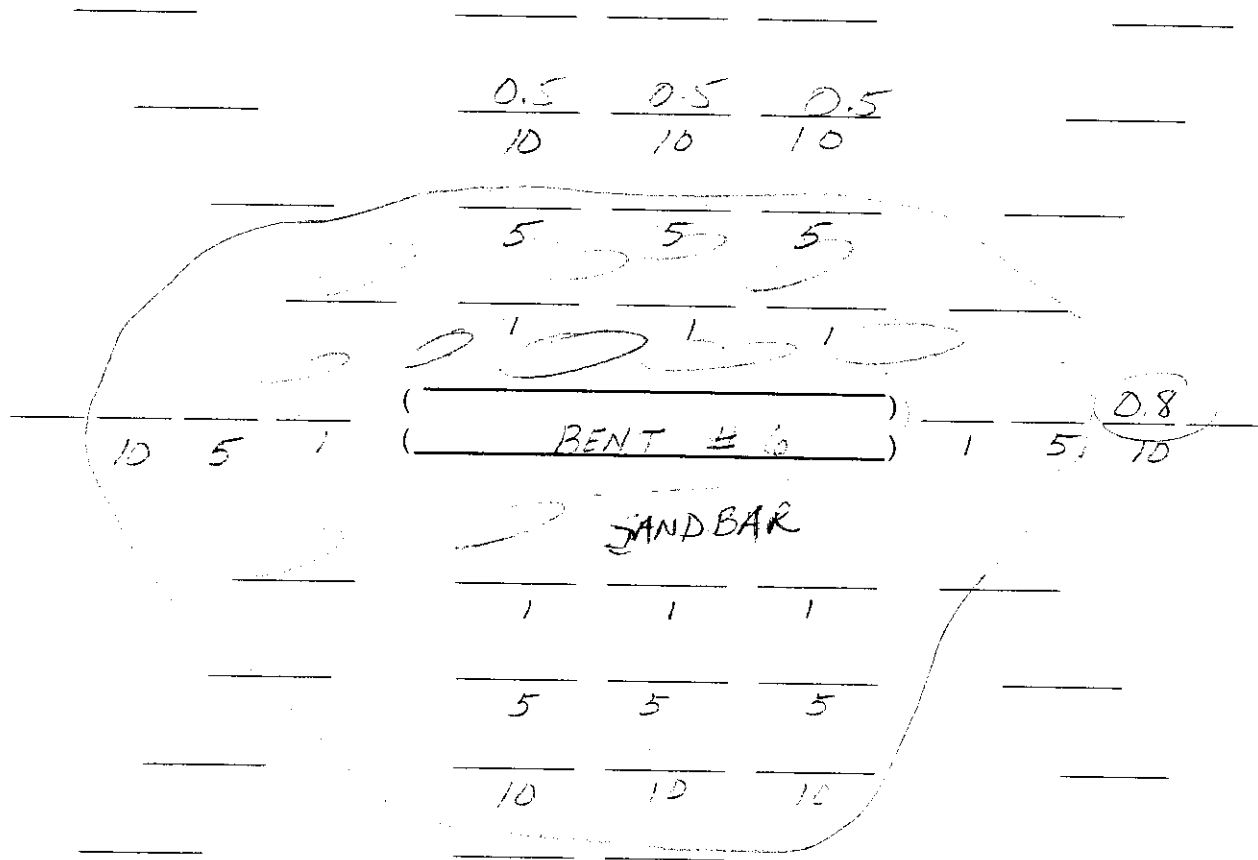 0.5 0.5 0.5
10 10 10
5 5 5
1 1 1
0.8
10 5 1 ( BENT # 6 ) 1 5 10
SANDBAR
1 1 1
5 5 5
10 10 10